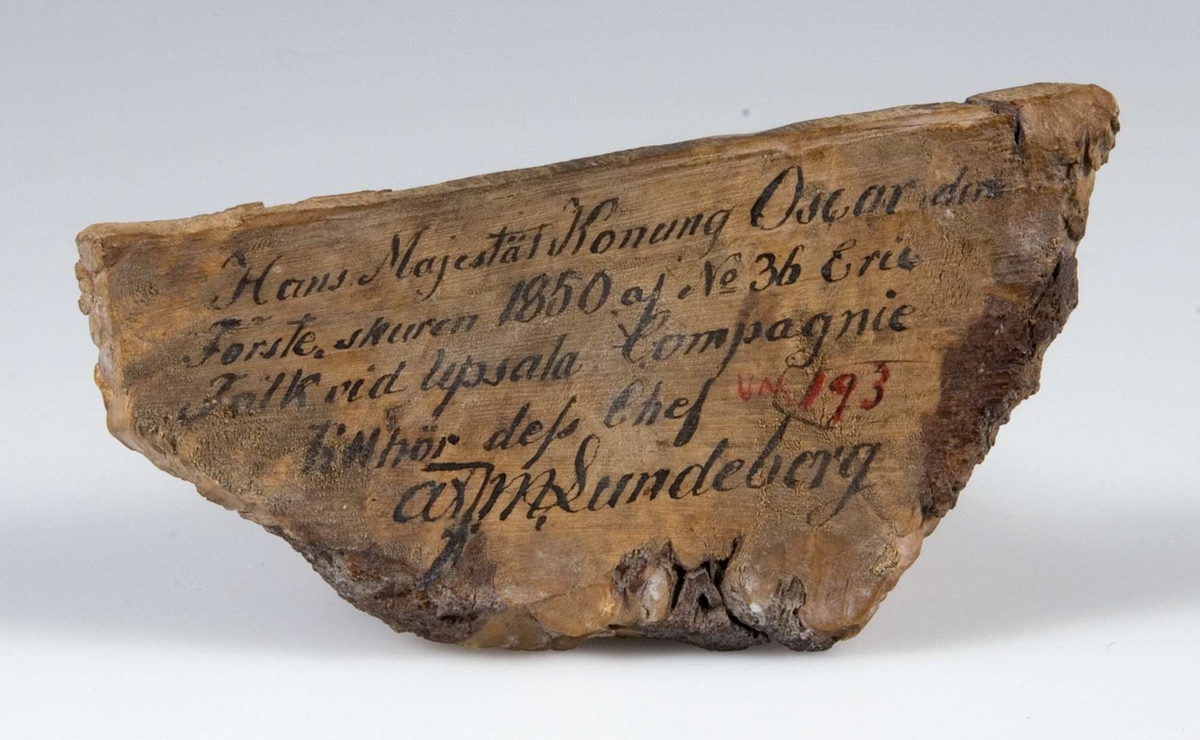 Hans Majestät Konung Oscar den
Förste. skuren 1850 af No 36 Eric
Fälk vid Upsala Compagnie
tillhör deſs Chef
UM 193
Lundeberg